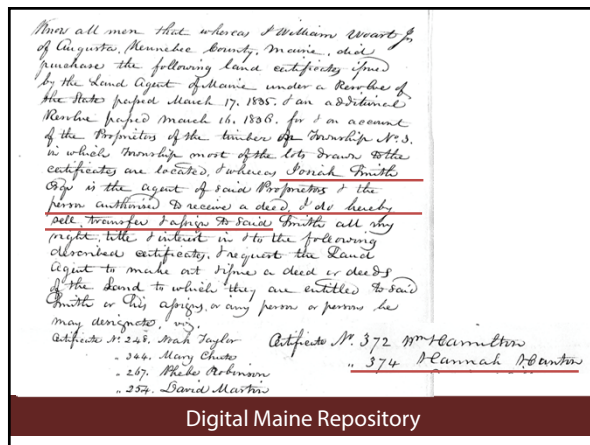 Know all men that whereas I William Woart Jr
of Augusta, Kennebec County, Maine, did
purchase the following land certificates issued
by the Land Agent of Maine under a Resolve of
the State passed March 17. 1835. & an additional
Resolve passed March 16. 1836. for & on account
of the Proprietors of the timber on Township No. 3.
in which Township most of the lots drawn to the
certificates are located, & whereas Josiah Smith
Esqr is the agent of said Proprietors & the
person authorised to receive a deed, I do hereby
sell, transfer & assign to said Smith all my
right, title & interest in & to the following
described certificates, & request the Land
Agent to make out & issue a deed or deeds
of the Land to which they are entitled to said
Smith or his assigns, or any person or persons he
may designate, viz.
Certificate No. 248. Noah Taylor
„ 344. Mary Chute
„ 267. Phebe Robinson
„ 254. David Martin
Certificate No. 372 Wm Hamilton
„ 374 Hannah
Digital Maine Repository